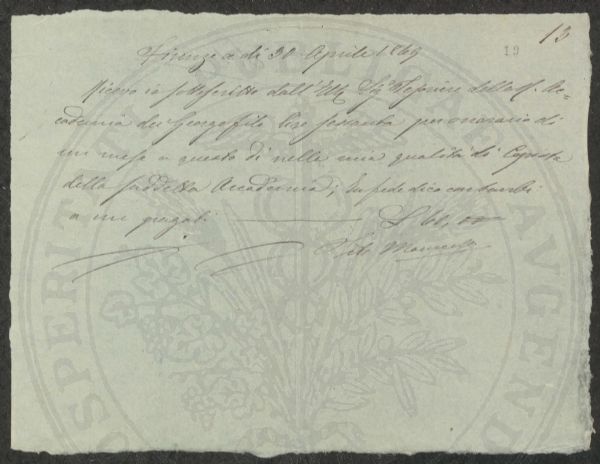 13
19
Firenze a di 30 Aprile 1869
Ricevo io sottoscritto dall' Sig. Tesoriere della R. Ac=
cademia dei Georgofili Lire sessanta per onorario di
un mese a questo dì nella mia qualità di Copista
della suddetta Accademia; In fede dico contanti
a me pagati L 60,00
Tito
PROSPERITATI AUGENDAE